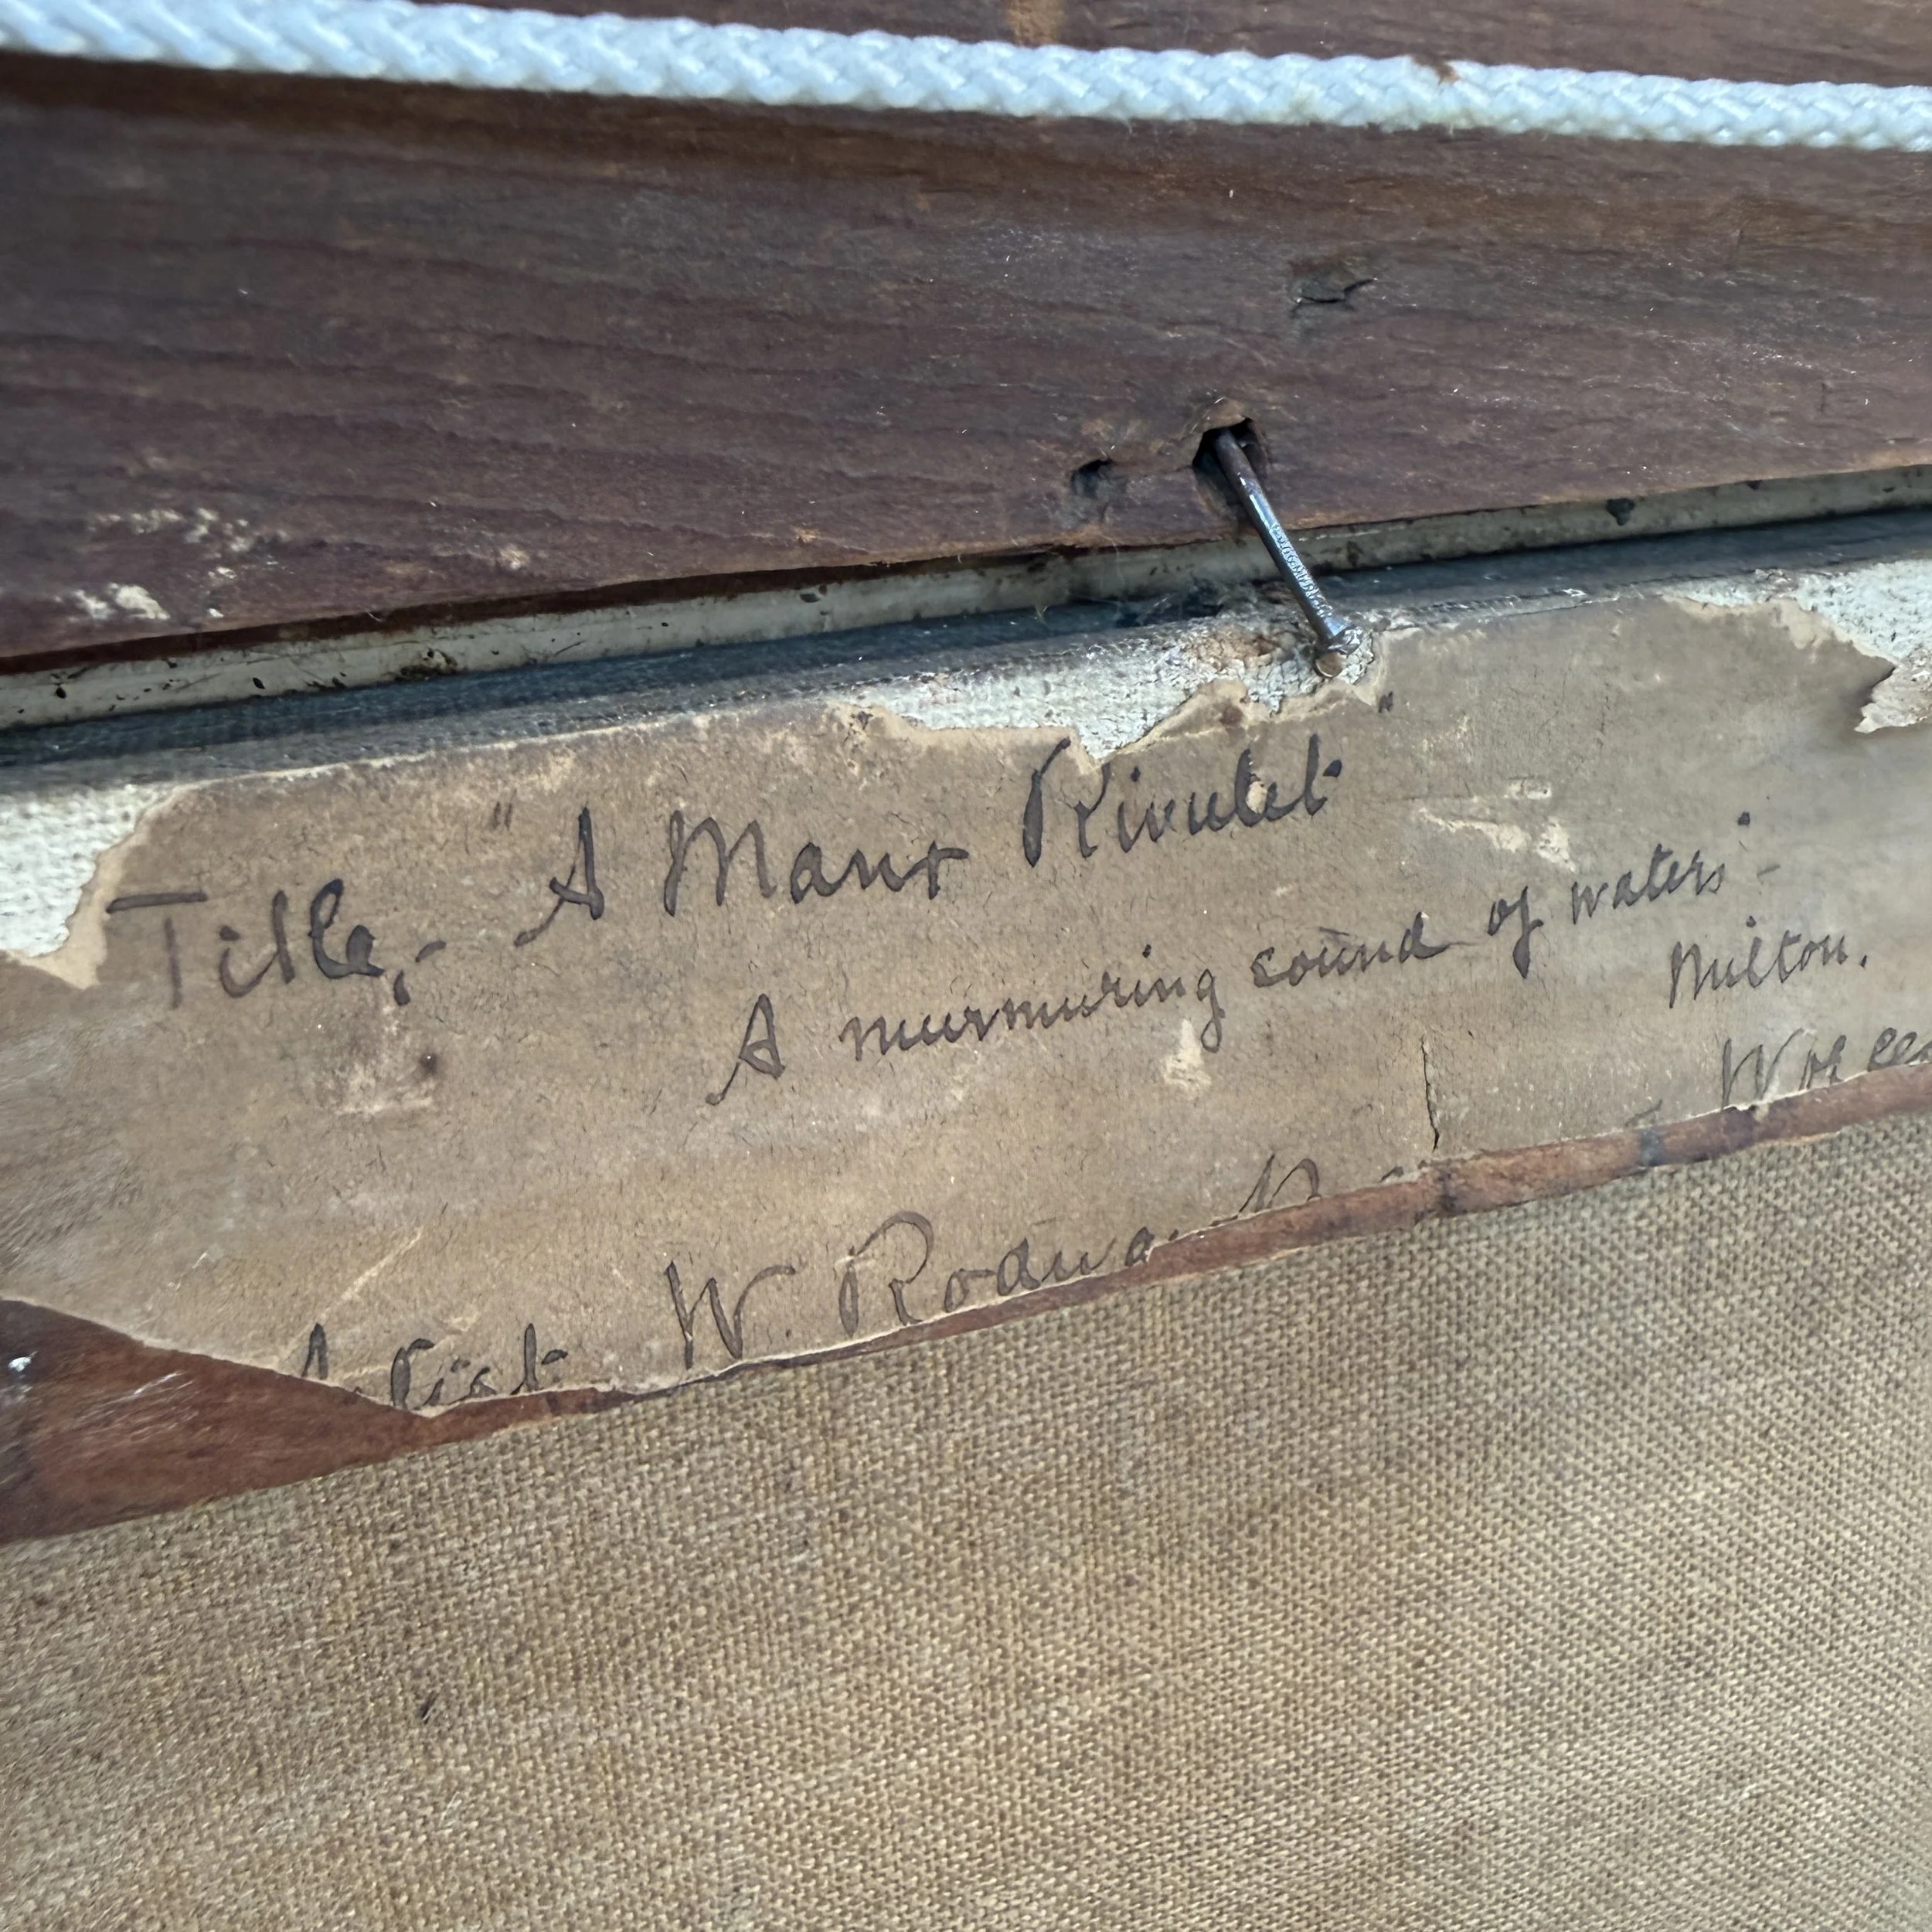 Title,- "A Manx Rivulet"
A murmuring sound of waters" -
Milton.
W. Rodwa